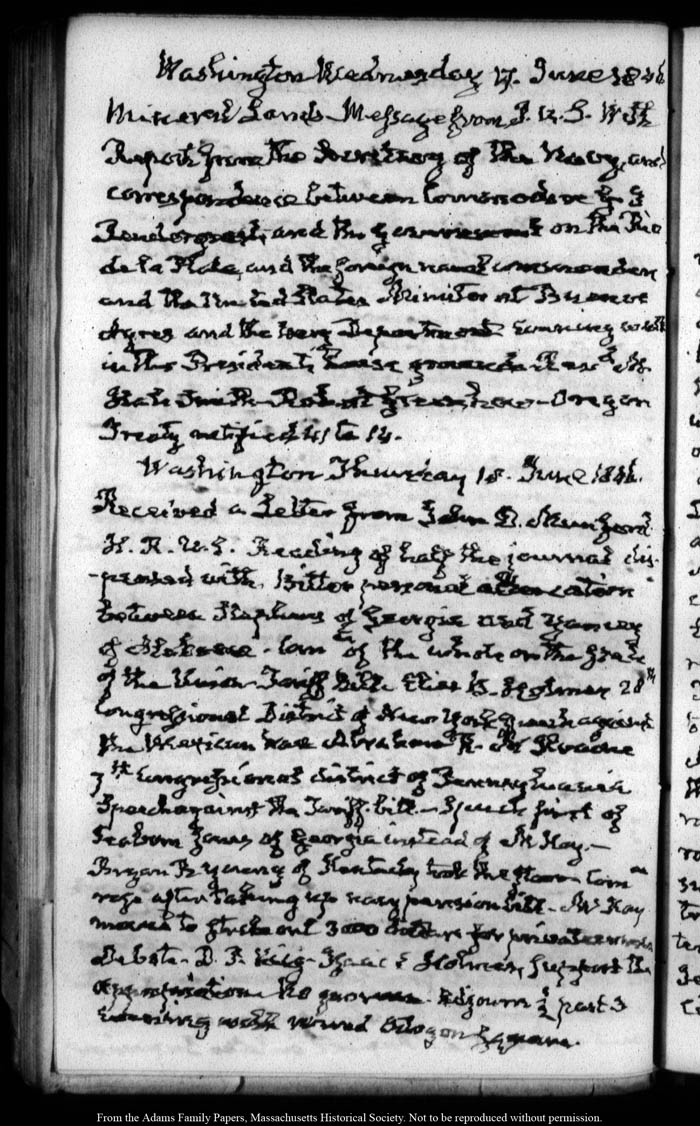 Washington Wednesday 17. June 1846
Mineral Lands Message from P. U. S. with
Report from the Secretary of the Navy, and
correspondence between Commodore
Pendergrast, and the on the Rio
de la Plata, and the foreign naval
and the United States Minister at Buenos
Ayres and the Navy Department Evening walk
in the President's
State Greenhow - Oregon
Treaty 41 to 14.
Washington Thursday 18. June 1846.
Received a Letter from John D. Munford
H. R. U. S. Reading of half the journal dis-
-pensed with. Bitter personal altercation
between Stephens of Georgia and Yancey
of Alabama - Comtee of the whole on the State
of the Union - Tariff bill. Elias B. Holmes 28th
Congressional District of New York speech against
the Mexican war Abraham R. McIlvaine
7th Congressional district of Pennsylvania
Speech against the Tariff bill - Speech first of
Seaborn Jones of Georgia instead of McKay -
Bryan R Young of Kentucky took the floor Comee
rose after taking up navy pension bill - McKay
moved to strike out 3000 dollars for privateersmen
Debate - D. P. King - Isaac E Holmes, support the
appropriation No quorum. Adjourn ½ past 3
Evening walk round square.